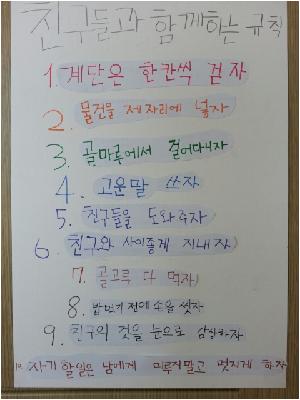 친구들과 함께하는 규칙
1. 계단은 한칸씩 걷자
2. 물건을 제자리에 넣자
3. 골마루에서 걸어다니자
4. 고운말 쓰자
5. 친구들을 도와주자
6. 친구와 사이좋게 지내자
7. 골고루 다 먹자
8. 밥 먹기 전에 손을 씻자
9. 친구의 것을 눈으로 감상하자
10. 자기 할일은 남에게 미루지말고 멋지게 하자